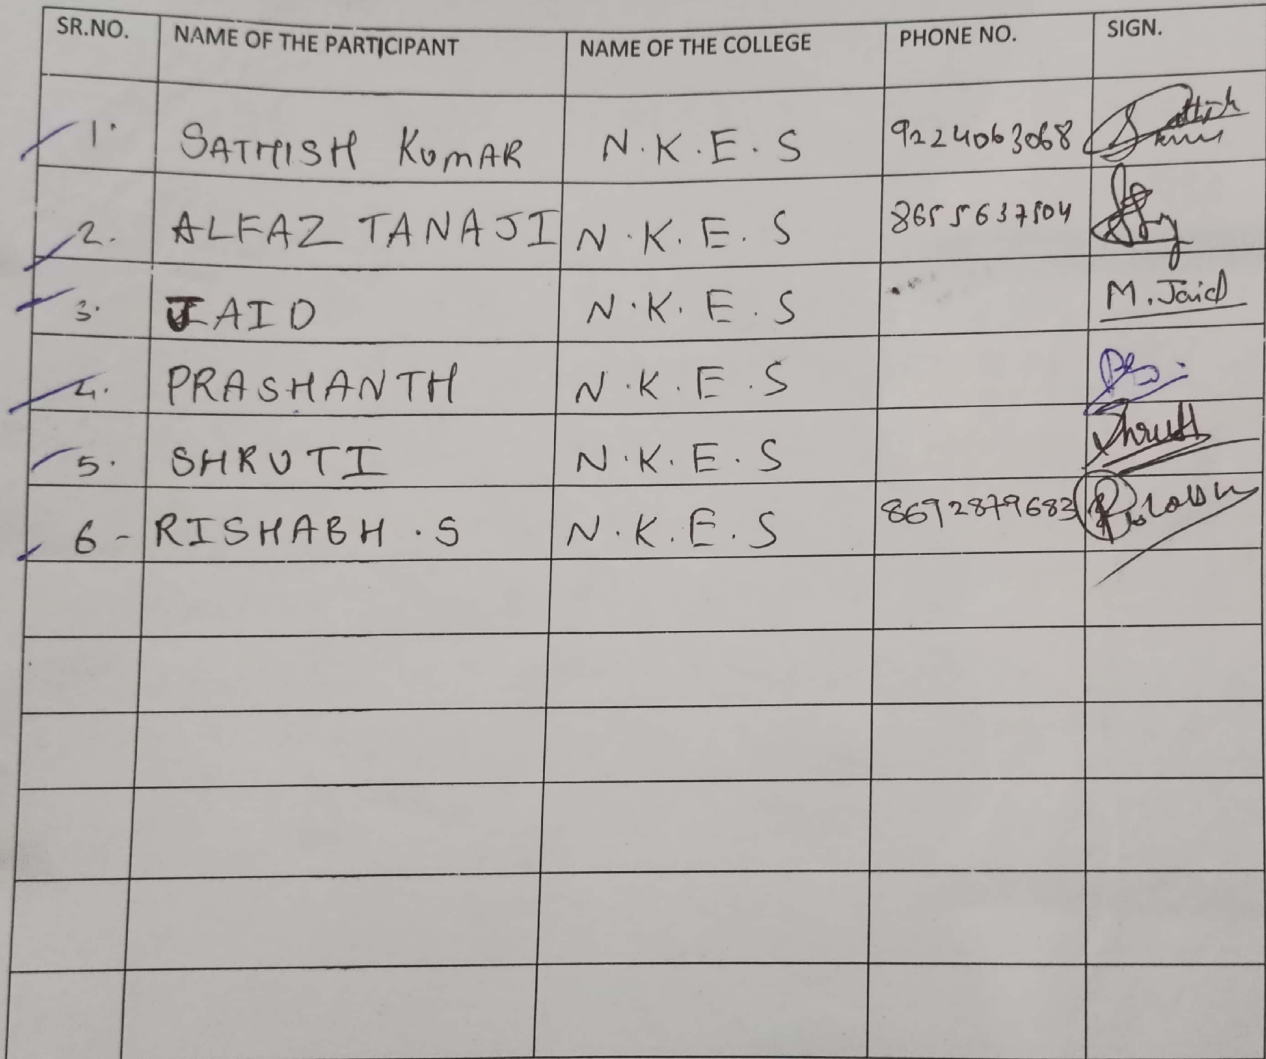 SR.NO. NAME OF THE PARTICIPANT NAME OF THE COLLEGE PHONE NO. SIGN.
1. SATHISH KUMAR N.K.E.S 9224063068 Sathish Kumar
2. ALFAZ TANAJI N.K.E.S 8655637504
3. JAID N.K.E.S M.Jaid
4. PRASHANTH N.K.E.S
5. SHRUTI N.K.E.S Shruti
6- RISHABH.S N.K.E.S 8692879683